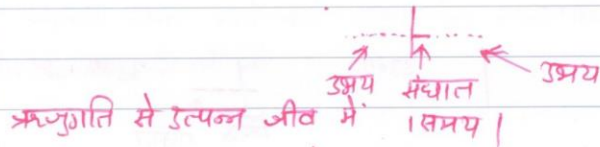 उभय संघात उभय
ऋजुगति से उत्पन्न जीव में । समय ।